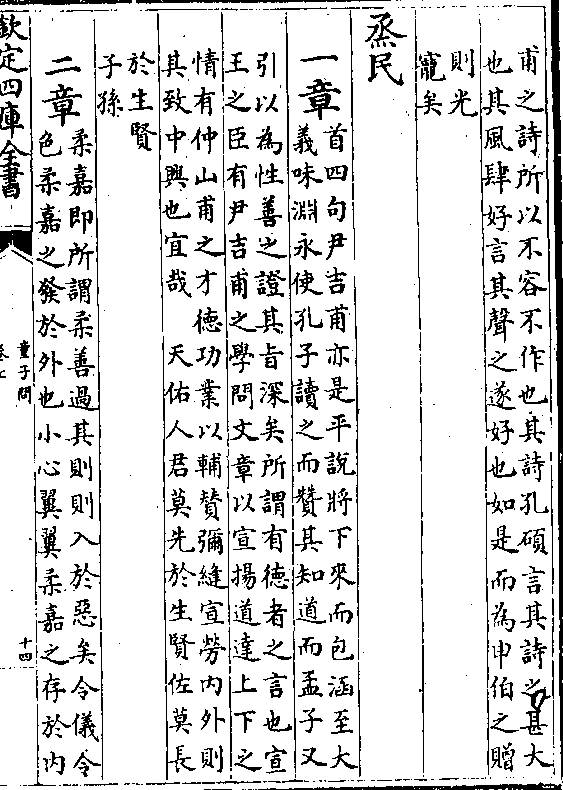 甫之詩所以不容不作也其詩孔碩言其詩之甚大
也其風肆好言其聲之遂好也如是而為申伯之贈
則光
寵矣
烝民
一章
首四句尹吉甫亦是平說將下來而包涵至大
義味淵永使孔子讀之而贊其知道而孟子又
引以為性善之證其旨深矣所謂有德者之言也宣
王之臣有尹吉甫之學問文章以宣揚道達上下之
情有仲山甫之才德功業以輔贊彌縫宣勞內外則
其致中興也宜哉　天佑人君莫先於生賢佐莫長
於生賢
子孫
二章
柔嘉即所謂柔善過其則則入於惡矣令儀令
色柔嘉之發於外也小心翼翼柔嘉之存於內
欽定四庫全書
童子問
卷七
十四